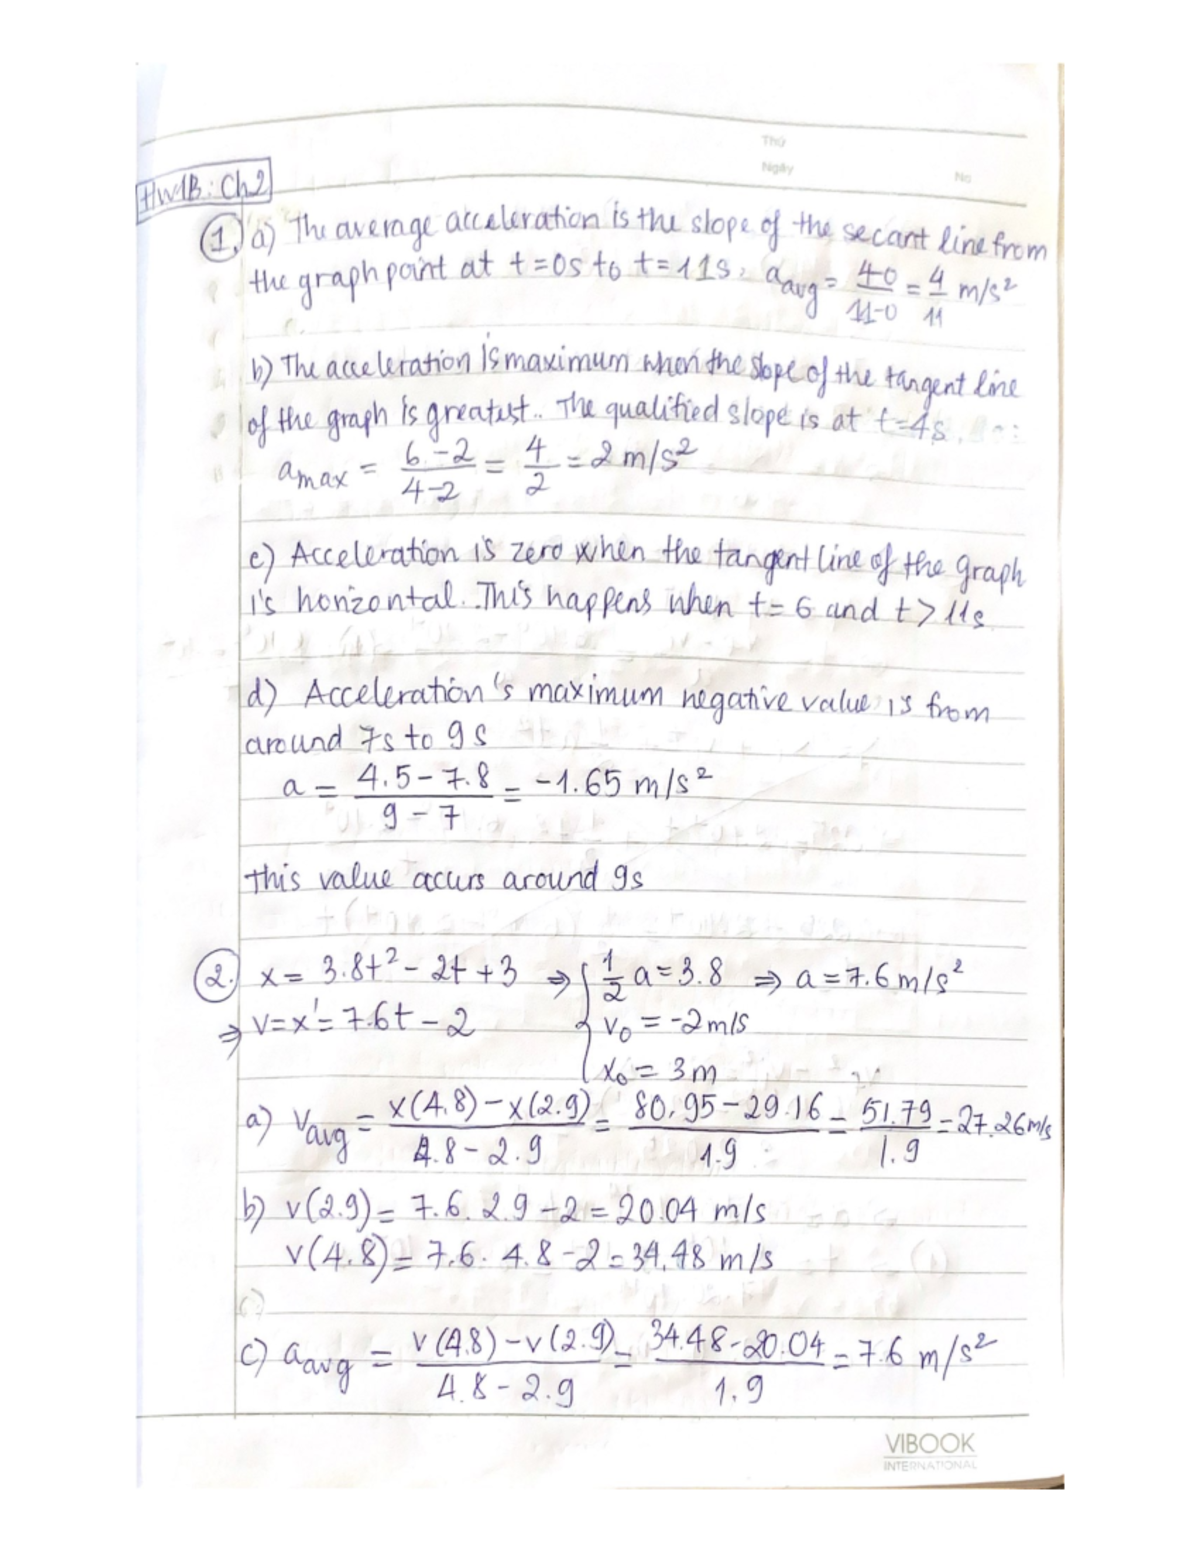 Thứ
Ngày
No
HW1B: Ch2
1. a) The average acceleration is the slope of the secant line from
the graph point at t=0s to t=11s, a_avg = 4-0/11-0 = 4/11 m/s²
b) The acceleration is maximum when the slope of the tangent line
of the graph is greatest.. The qualified slope is at t=4s.
a_max = 6-2/4-2 = 4/2 = 2 m/s²
c) Acceleration is zero when the tangent line of the graph
is horizontal. This happens when t=6 and t>11s
d) Acceleration's maximum negative value is from
around 7s to 9s
a = 4.5-7.8/9-7 = -1.65 m/s²
this value accurs around 9s
2. x = 3.8t² - 2t + 3 ⇒ { 1/2 a = 3.8 ⇒ a = 7.6 m/s²
⇒ v = x' = 7.6t - 2 v₀ = -2 m/s
x₀ = 3m
a) v_avg = x(4.8) - x(2.9)/4.8 - 2.9 = 80.95 - 29.16/1.9 = 51.79/1.9 = 27.26 m/s
b) v(2.9) = 7.6. 2.9 - 2 = 20.04 m/s
v(4.8) = 7.6. 4.8 - 2 = 34.48 m/s
c) a_avg = v(4.8) - v(2.9)/4.8 - 2.9 = 34.48 - 20.04/1.9 = 7.6 m/s²
VIBOOK
INTERNATIONAL